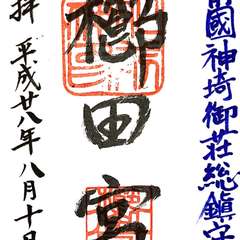 國神埼御荘総鎮守
櫛田宮
拝 平成廿八年八月十日